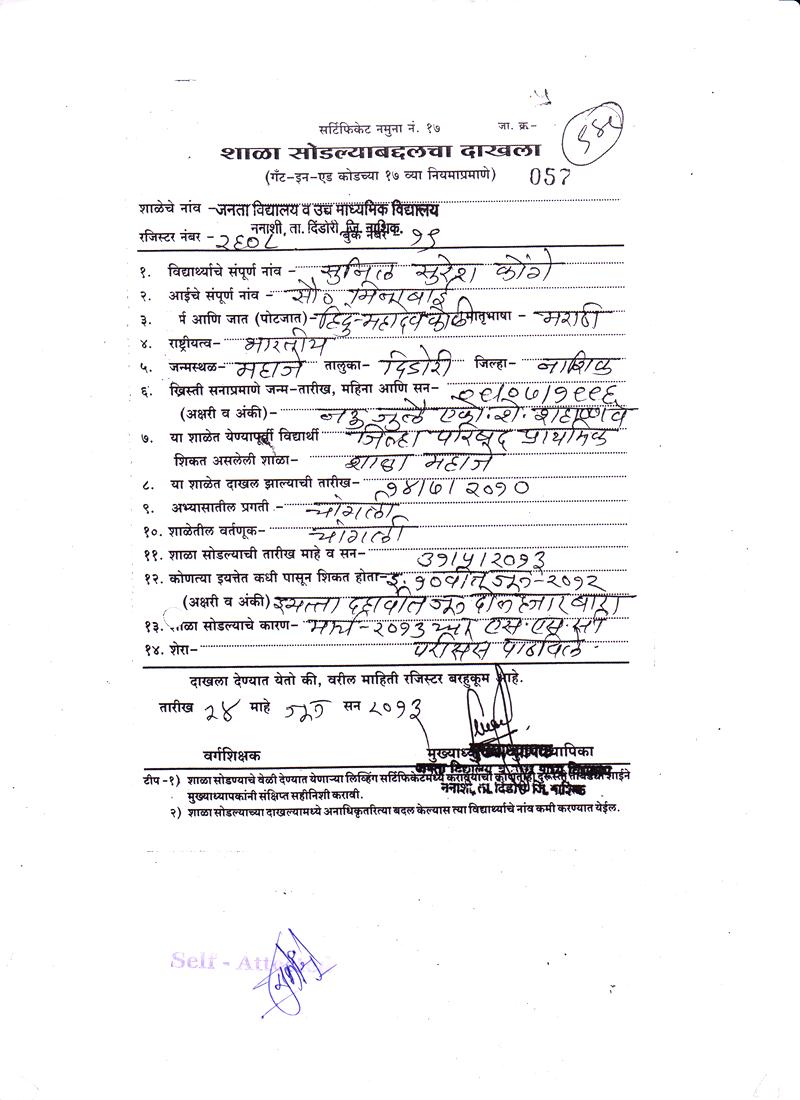 सर्टिफिकेट नमुना नं. १७ जा. क्र-
शाळा सोडल्याबद्दलचा दाखला
(गँट-इन-एड कोडच्या १७ व्या नियमाप्रमाणे) 057
शाळेचे नांव - जनता विद्यालय व उच्च माध्यमिक विद्यालय
ननाशी, ता. दिंडोरी, जि. नाशिक.
रजिस्टर नंबर - २६०८ बुक नंबर - १९
१. विद्यार्थ्याचे संपूर्ण नांव - सुनिल सुरेश कोंगे
२. आईचे संपूर्ण नांव - सौ० मिनाबाई
३. र्म आणि जात (पोटजात)- हिंदु-महादेव कोळी मातृभाषा - मराठी
४. राष्ट्रीयत्व- भारतीय
५. जन्मस्थळ- महाजे तालुका- दिंडोरी जिल्हा- नाशिक
६. ख्रिस्ती सनाप्रमाणे जन्म-तारीख, महिना आणि सन- ०९/०७/१९९६
(अक्षरी व अंकी)- नऊ जुलै एको. शे. शहाण्णव
७. या शाळेत येण्यापूर्वी विद्यार्थी जिल्हा परिषद प्राथमिक
शिकत असलेली शाळा- शाळा महाजे
८. या शाळेत दाखल झाल्याची तारीख- १४/७/२०१०
९. अभ्यासातील प्रगती - चांगली
१०. शाळेतील वर्तणूक- चांगली
११. शाळा सोडल्याची तारीख माहे व सन- ३१/५/२०१३
१२. कोणत्या इयत्तेत कधी पासून शिकत होता- इ. १०वीत जून-२०१२
(अक्षरी व अंकी) इयत्ता दहावीत जून दोन हजार बारा
१३. शाळा सोडल्याचे कारण- मार्च-२०१३ च्या एस.एस.सी
१४. शेरा- परीक्षेस पाठविले.
दाखला देण्यात येतो की, वरील माहिती रजिस्टर बरहुकूम आहे.
तारीख २४ माहे जून सन २०१३
वर्गशिक्षक मुख्याध्यापक
ननाशी, ता. दिंडोरी जि. नाशिक
टीप -१) शाळा सोडण्याचे वेळी देण्यात येणाऱ्या लिव्हिंग सर्टिफिकेटमध्ये करावयाची कोणतीही दुरुस्ती तांबड्या शाईने
मुख्याध्यापकांनी संक्षिप्त सहीनिशी करावी.
२) शाळा सोडल्याच्या दाखल्यामध्ये अनाधिकृतरित्या बदल केल्यास त्या विद्यार्थ्याचे नांव कमी करण्यात येईल.
Self - Att